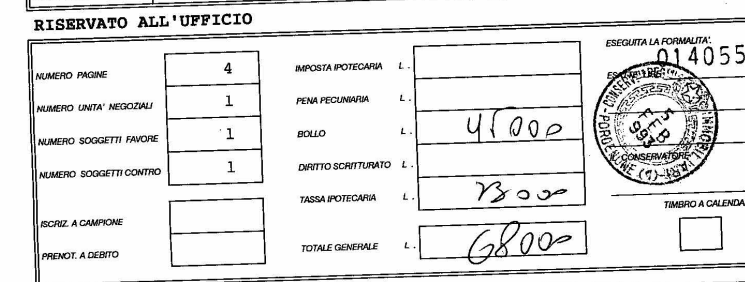 RISERVATO ALL'UFFICIO
NUMERO PAGINE 4
NUMERO UNITA' NEGOZIALI 1
NUMERO SOGGETTI FAVORE 1
NUMERO SOGGETTI CONTRO 1
ISCRIZ. A CAMPIONE
PRENOT. A DEBITO
IMPOSTA IPOTECARIA L.
PENA PECUNIARIA L.
BOLLO L. 45000
DIRITTO SCRITTURATO L.
TASSA IPOTECARIA L. 23000
TOTALE GENERALE L. 68000
ESEGUITA LA FORMALITA'.
014055
5
FEB
993
CONSERVATORE
PORDENONE
TIMBRO A CALENDA